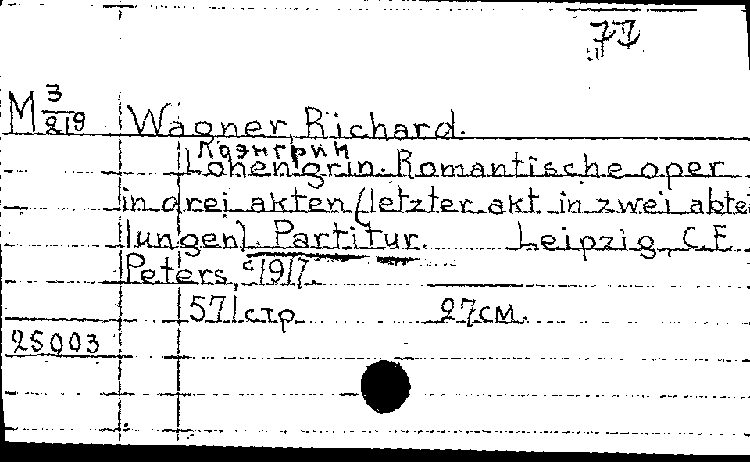 М 3/219 Wagner, Richard.
Lohengrin. Romantische oper
in drei akten (letzter akt in zwei abtei
lungen). Partitur. Leipzig, C.F.
Peters, c1917.
571 стр 27см.
25003